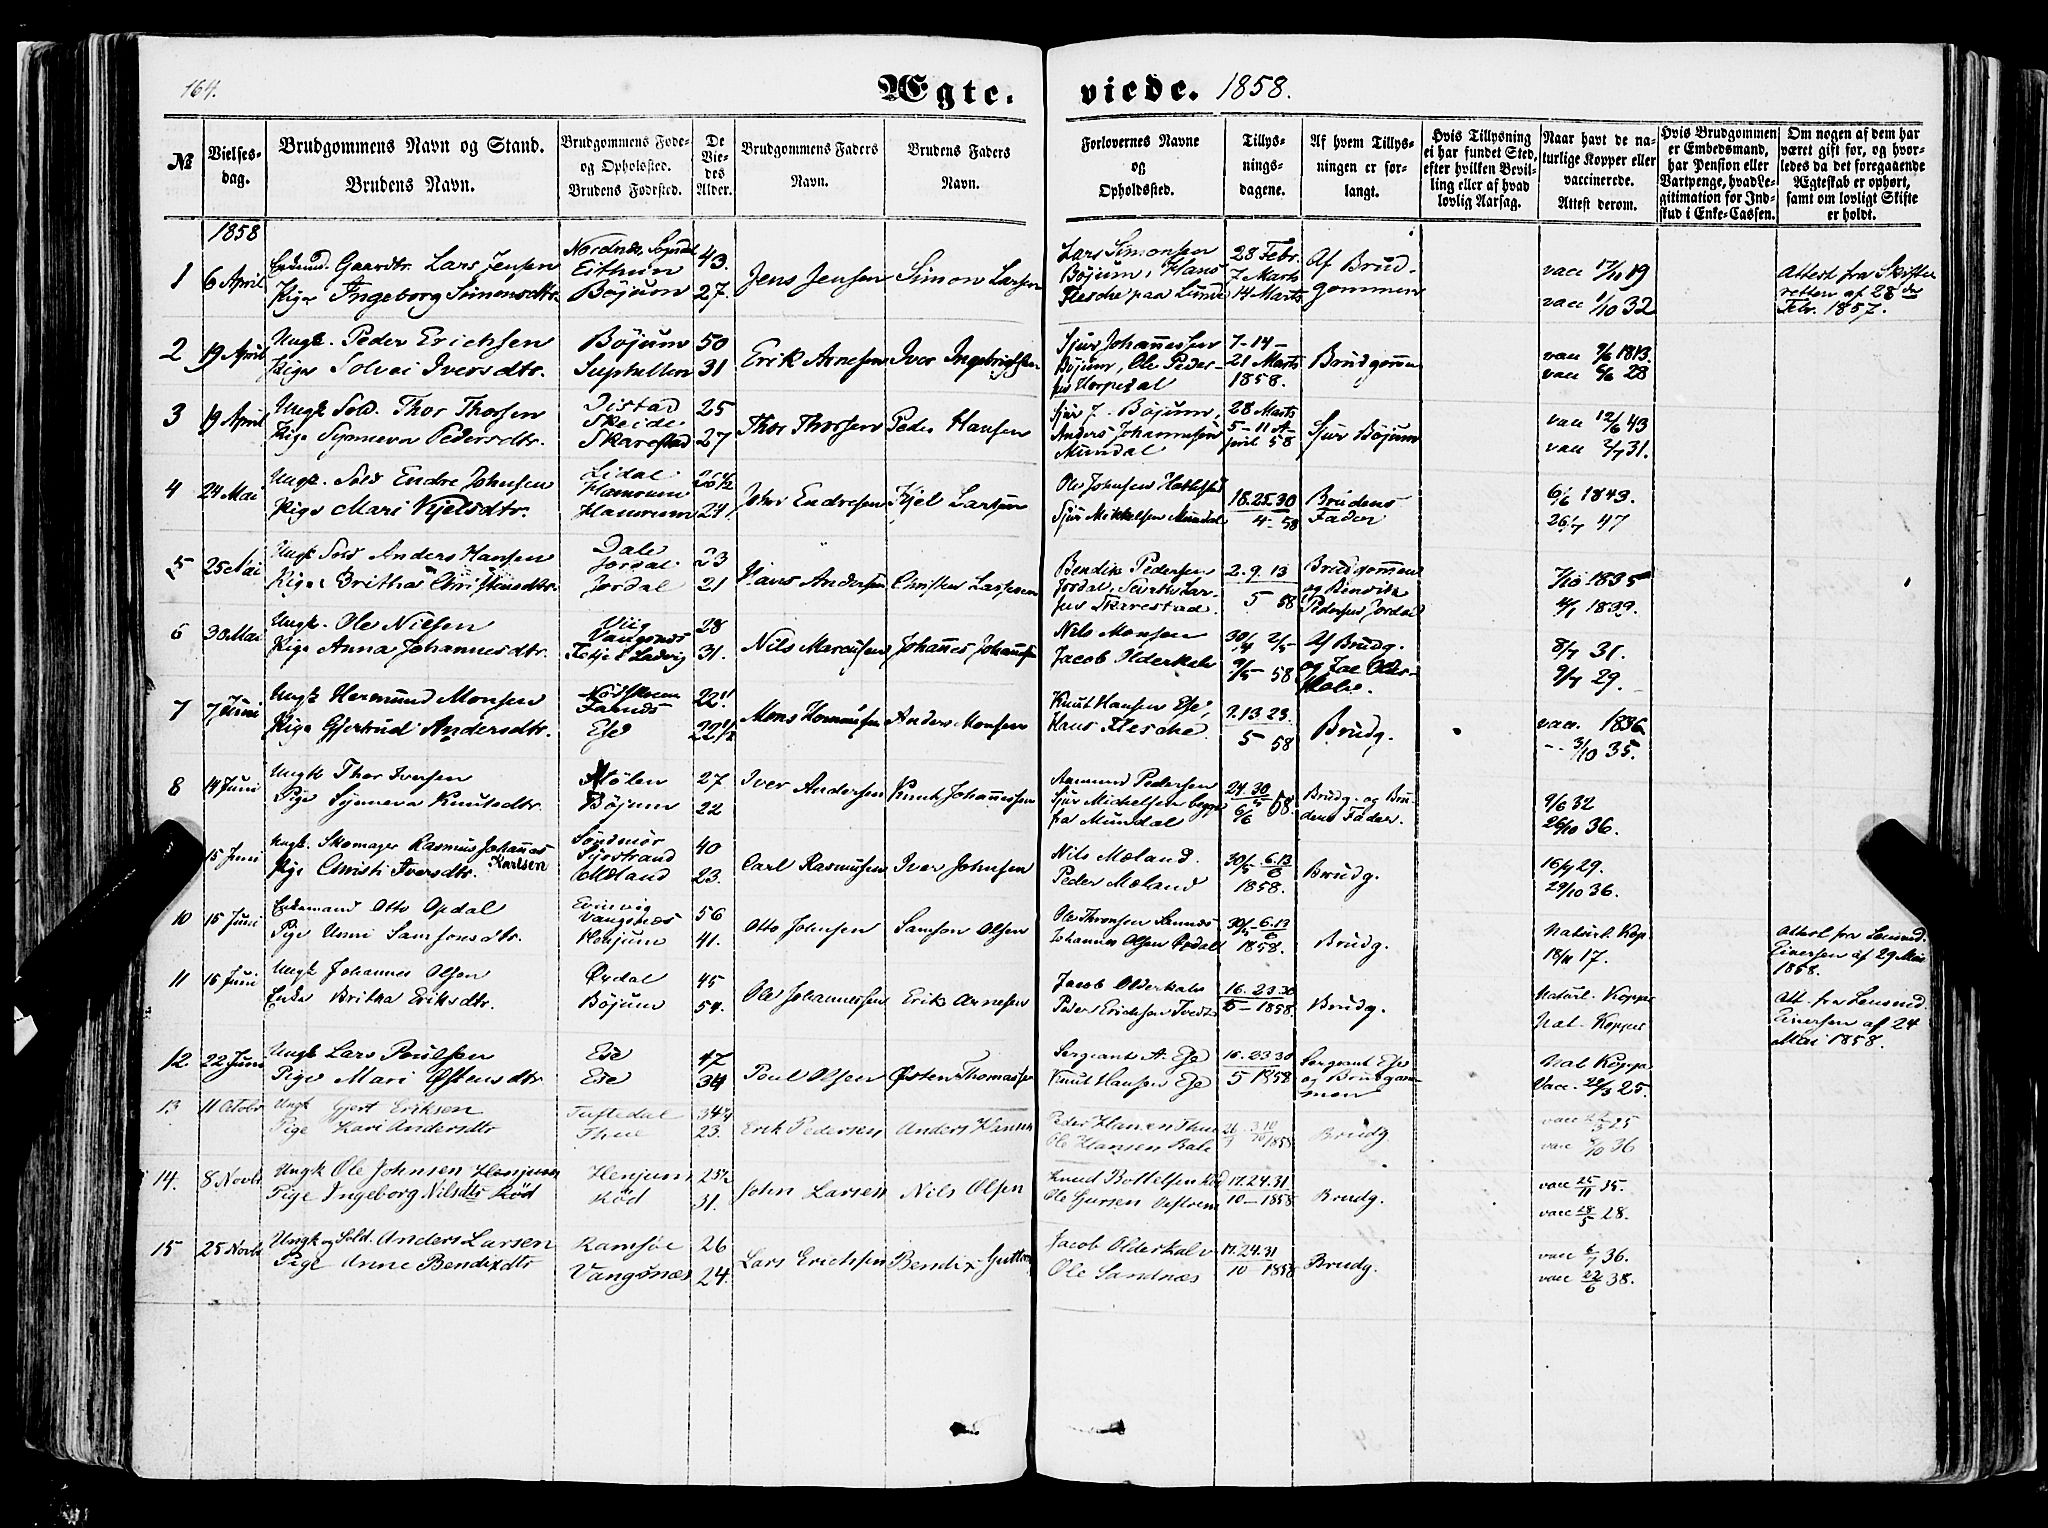 164.
Ægte. viede. 1858.
№
Vielses-
dag.
Brudgommens Navn og Stand.
Brudens Navn.
Brudgommens Føde-
og Opholdsted.
Brudens Fødested.
De
Vie-
des
Alder.
Brudgommens Faders
Navn.
Brudens Faders
Navn.
Forlovernes Navne
og
Opholdssted.
Tillys-
nings-
dagene.
Af hvem Tillys-
ningen er for-
langt.
Hvis Tillysning
ei har fundet Sted,
efter hvilken Bevil-
ling eller af hvad
lovlig Aarsag.
Naar havt de na-
turlige Kopper eller
vaccinerede.
Attest derom.
Hvis Brudgommen
er Embedsmand,
har Pension eller
Vartpenge, hvad Le-
gitimation for Ind-
skud i Enke-Cassen.
Om nogen af dem har
været gift før, og hvor-
ledes da det foregaaende
Ægteskab er ophørt,
samt om lovligt Skifte
er holdt.
1858
1 6 April Gaardbr. Lars Jensen
Pige Ingeborg Simonsdtr.
Nordnæs, Sogndal
Eithun
Böjum
43.
27.
Jens Jensen Simon Larsen
Lars Simonsen
Böjum, Hans
Flesche paa Lunde
28 Febr.
7 Marts
14 Marts
Af Brud-
gommen
vacc 17/11 19
vacc 1/10 32
Attest fra Skifte-
retten af 28de
Febr. 1857.
2 19 April Ungk. Peder Erichsen
Pige Solvei Iversdtr.
Böjum
Suphellen
50
31
Erik Arnesen Iver Ingebrigtsen
Sjur Johannesen
Böjum, Ole Peder-
sen
7-14-
21 Marts
1858.
Brudgomm
vacc 9/6 1813.
vacc 6/6 28
3 19 April Ungk Sold. Thor Thorsen
Pige Synneva Pedersdtr.
Distad
Skeide
Skarestad
25
27
Thor Thorsen Peder Hansen
Sjur J. Böjum,
Anders Johannesen
Mundal
28 Marts
5-11 A-
pril 58
Sjur Böjum
vacc 12/6 43
vacc 2/7 31.
4 24 Mai Ungk. Sold Endre Johnsen
Pige Mari Kjelsdtr.
Lidal
Hamrum
Hamrum
26 1/2
21
John Endresen Kjel Larsen
Ole Johnsen
Sjur Mikkelsen Mundal
18.25.30
4-58
Brudens
Fader
6/6 1843.
26/7 47
5 25 Mai Ungk Sold Anders Hansen
Pige Britha Christensdtr.
Dale
Jordal
Jordal
23
21
Hans Andersen Christen Larssen
Bendix Pedersen
Jordal, Lar-
sen Skarestad.
2.9.13
5 58
Brudgommen
og
Pedersen Jordal
7/10 1835
4/7 1839.
6 30 Mai Ungk. Ole Nielsen
Pige Anna Johannesdtr.
Viig
Vangsnæs
Ladvig
28
31.
Nils Marcusen Johannes Johannesen
Nils Monsen
Jacob Olderkale
30/4 2/5
9/5 58
Af Brudg.
og Jac Older-
kale.
8/7 31.
9/7 29.
7 7 Juni Ungk Hermund Monsen
Pige Gjertrud Andersdtr.
Farnes
Ese
22
22 1/2
Mons Anders Monsen
Knut Hansen Ese,
Hans Flesche.
9.13.23.
5 58
Brudg.
vacc. 1836
-- 3/10 35.
8 14 Juni Ungk Thor Iversen
Pige Synneva Knutsdtr.
Mölen
Böjum
27
22
Iver Andersen Knut Johannessen
Aamund Pedersen
Sjur Mickelsen begge
fra Mundal
24.30
6/6 58.
Brudg. og Bru-
dens Fader.
9/6 32
26/10 36.
15 Juni Ungk. Skomager Rasmus Johannes
Karlsen
Pige Christi Iversdtr.
Söndmör
Syrstrand
Mæland
40
23.
Carl Rasmusen Iver Johnsen
Nils Mæland.
Peder Mæland
30/5 6.13
6
1858.
Brudg.
16/9 29.
29/10 36.
10 15 Juni Enkemand Otto Opdal
Pige Unni Samsonsdtr.
Evinvig
Vangsnæs
Henjum
56
41.
Otto Johnsen Samson Olsen
Ole Thronsen
Johannes Olsen Opdal
30/5 6.13
6
1858.
Brudg.
Naturl. Kop.
18/11 17.
Attest fra Lensmd.
Einersen af 29 Mai
1858.
11 15 Juni Ungk Johannes Olsen
Enke Britha Eriksdtr.
Ovdal
Böjum
45
54.
Ole Johannessen Erik Arnesen
Jacob Olderkale
Peder Erichsen Tvedt
16.23.30
5-1858
Brudg.
Naturl. Kopper
Nat. Kopper
Att. fra Lensmd
Einersen af 24
Mai 1858.
12. 22 Juni Ungk Lars Poulsen
Pige Mari Østensdtr
Ese
Ese
47
34
Poul Olsen Østen Thomassen
Sergeant A. Ese
Knut Hansen Ese
16.23.30
5 1858
Sergeant Ese
og Brudgom-
men
Nat Kopper
Vacc. 29/9 25.
13 11 Octobr Ungk Gjert Eriksen
Pige Kari Andersdtr
Tuftedal
Thue
34
23.
Erik Pedersen Anders
Peder Hansen Thue
Ole Hansen Bale
26/9 3.10
1858
Brudg
vacc 25
vacc 9/10 36
14. 8 Novbr Ungk Ole Johnsen Henjum
Pige Ingeborg Nilsdtr Röd
Henjum
Röd
25 1/2
31.
John Larsen Nils Olsen
Knud Bottelsen Röd
Ole Gursen
17.24.31
10-1858
Brudg.
vacc 25/11 35.
vacc 18/5 28.
15 25 Novbr Ungk og Sold. Anders Larsen
Pige Anne Bendixdtr
Ramsöe
Vangsnæs
26
24.
Lars Erichsen Bendix
Jacob Olderkale
Ole Sandnæs
17.24.31
10 1858
Brudg.
vacc 6/7 36.
vacc 22/6 38.